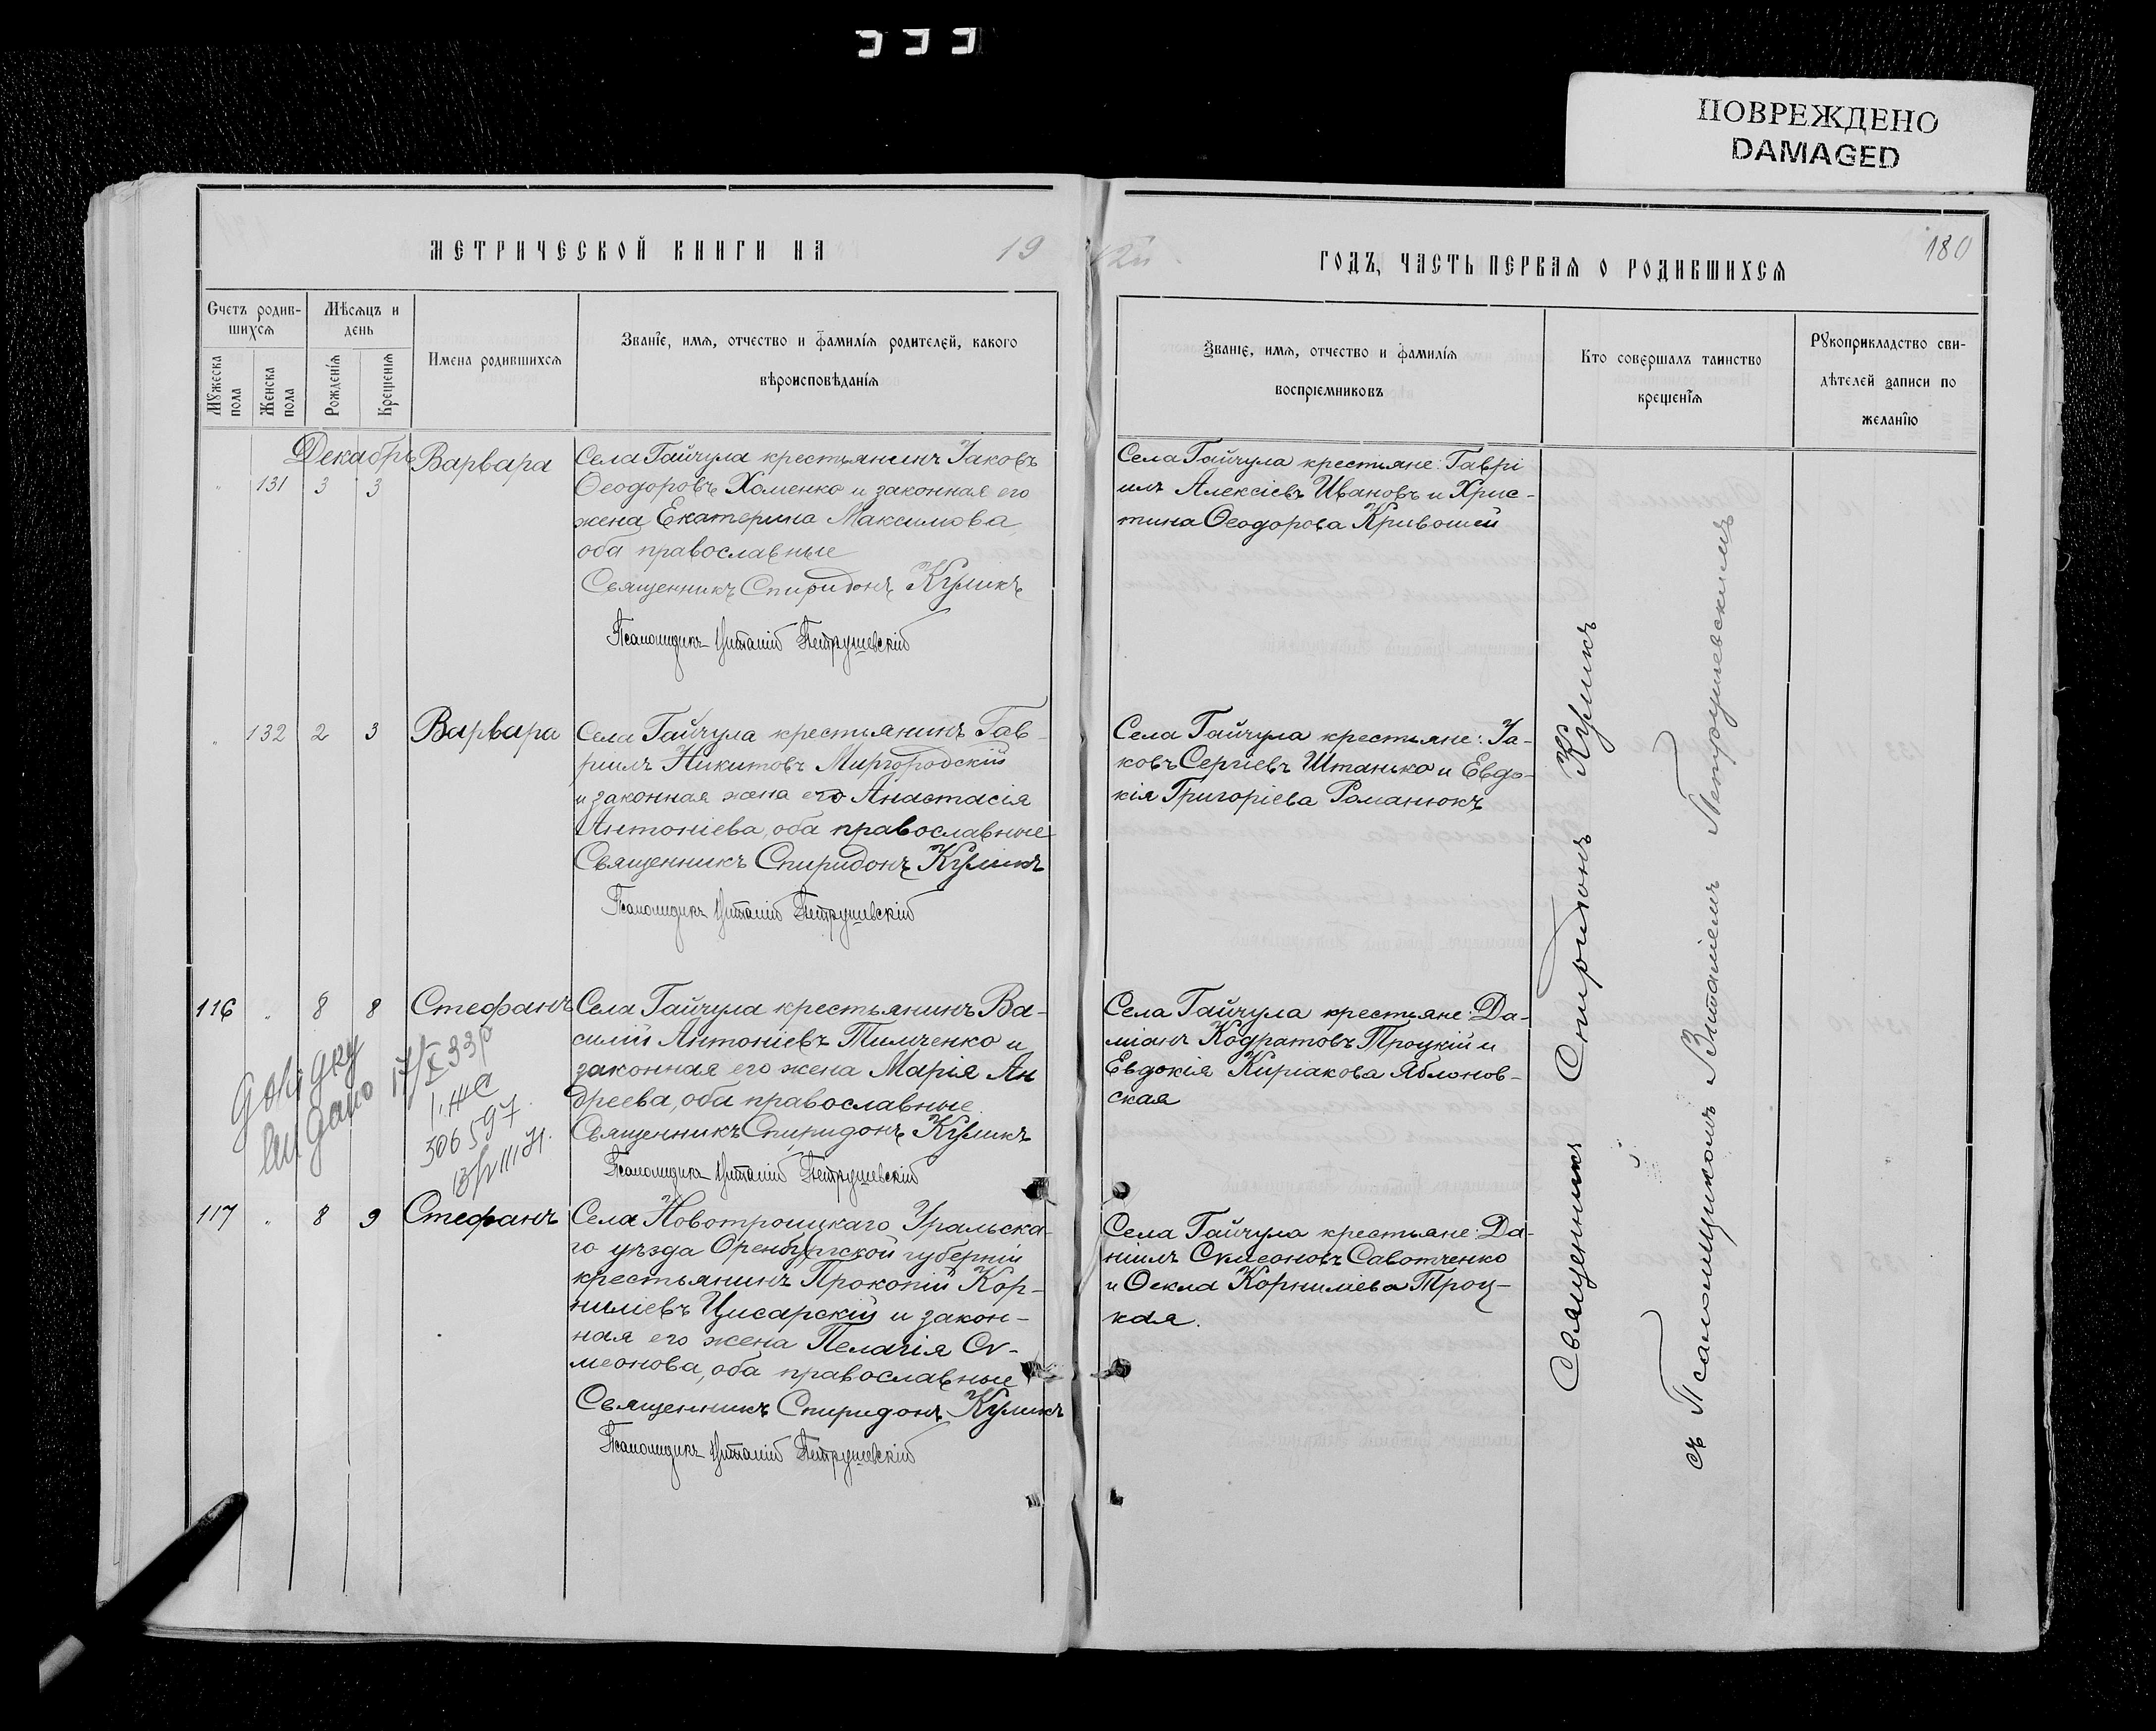 ПОВРЕЖДЕНО
DAMAGED
МЕТРИЧЕСКОЙ КНИГИ НА 19
12й ГОДЪ, ЧАСТЬ ПЕРВАЯ О РОДИВШИХСЯ
180
Счетъ родив-
шихся
Мужеска пола
Женска пола
Мѣсяцъ и
день
Рожденія
Крещенія
Имена родившихся
Званіе, имя, отчество и фамилія родителей, какого
вѣроисповѣданія
Званіе, имя, отчество и фамилія
воспріемниковъ
Кто совершалъ таинство
крещенія
Рукоприкладство сви-
дѣтелей записи по
желанію
Декабрь
" 131 3 3 Варвара
Села Гайчула крестьянинъ Іаковъ
Ѳеодоровъ Хоменко и законная его
жена Екатерина Максимова,
оба православные
Священникъ Спиридонъ Куликъ
Псаломщикъ Виталій Петрушевскій
Села Гайчула крестьяне: Гаврі
илъ Алексіевъ Ивановъ и Хрис-
тина Ѳеодорова Кривошей
" 132 2 3 Варвара
Села Гайчула крестьянинъ Гав-
риилъ Никитовъ Миргородскій
и законная жена его Анастасія
Антоніева, оба православные
Священникъ Спиридонъ Куликъ
Псаломщикъ Виталій Петрушевскій
Села Гайчула крестьяне: Іа-
ковъ Сергіевъ Штанько и Евдо-
кія Григоріева Романюкъ
116 " 8 8 Стефанъ
Села Гайчула крестьянинъ Ва-
силій Антоніевъ Тимченко и
законная его жена Марія Ан
дреева, оба православные.
Священникъ Спиридонъ Куликъ
Псаломщикъ Виталій Петрушевскій
Села Гайчула крестьяне: Да-
міанъ Кодратовъ Троцкій и
Евдокія Киріакова Яблонов-
ская
довідку
видано 17/X 33р
306597
117 " 8 9 Стефанъ
Села Новотроицкаго Уральска-
го уѣзда Оренбургской губерніи
крестьянинъ Прокопій Кор-
ниліевъ Цисарскій и закон-
ная его жена Пелагія Сѵ-
меонова, оба православные
Священникъ Спиридонъ Куликъ
Псаломщикъ Виталій Петрушевскій
Села Гайчула крестьяне: Да-
ніилъ Сѵмеоновъ Савотченко
и Ѳекла Корниліева Троц-
кая.
Священникъ Спиридонъ Куликъ
съ Псаломщикомъ Виталіемъ Петрушевскимъ